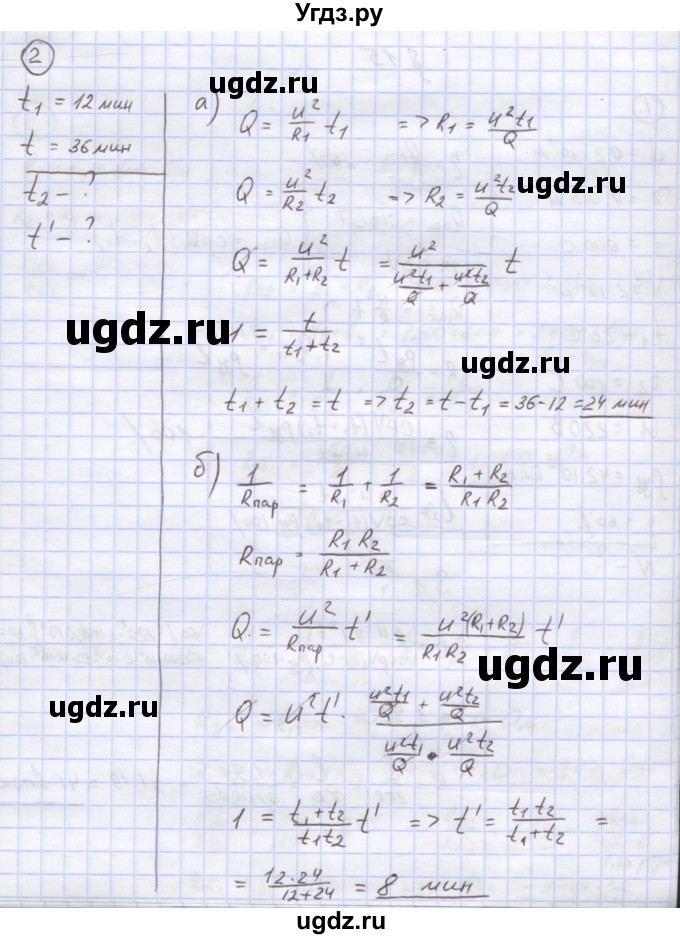 Угдз.ру
2
t₁ = 12 мин
t = 36 мин
t₂ - ?
t' - ?
а) Q = u²/R₁ t₁ => R₁ = u²t₁/Q
ugdz.ru
Q = u²/R₂ t₂ => R₂ = u²t₂/Q
ugdz.ru
Q = u²/(R₁+R₂) t = u²/(u²t₁/Q + u²t₂/Q) t
ugdz.ru
1 = t/(t₁+t₂)
ugdz.ru
t₁ + t₂ = t => t₂ = t - t₁ = 36 - 12 = 24 мин
б) 1/Rпар = 1/R₁ + 1/R₂ = (R₁ + R₂)/(R₁ R₂)
ugdz.ru
Rпар = R₁ R₂/(R₁ + R₂)
Q = u²/Rпар t' = u²(R₁+R₂)/(R₁R₂) t'
ugdz.ru
ugdz.ru
Q = u²t' · (u²t₁/Q + u²t₂/Q)/(u²t₁/Q · u²t₂/Q)
1 = (t₁+t₂)/(t₁t₂) t' => t' = t₁t₂/(t₁+t₂) =
ugdz.ru
= 12·24/(12+24) = 8 мин
ugdz.ru